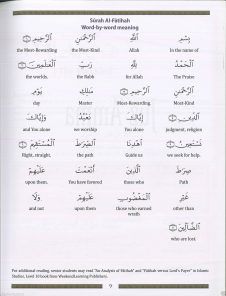 Sūrah Al-Fātihah
Word-by-word meaning
بِسْمِ اللَّهِ الرَّحْمَٰنِ الرَّحِيمِ
In the name of Allah the Most-Kind the Most-Rewarding
الْحَمْدُ لِلَّهِ رَبِّ الْعَالَمِينَ
The Praise for Allah the Rabb the worlds.
الرَّحْمَٰنِ الرَّحِيمِ مَالِكِ يَوْمِ
Most-Kind Most-Rewarding Master day
الدِّينِ إِيَّاكَ نَعْبُدُ وَإِيَّاكَ
judgment, religion You alone we worship and You alone
نَسْتَعِينُ اهْدِنَا الصِّرَاطَ الْمُسْتَقِيمَ
we seek for help. Guide us the path Right, straight,
صِرَاطَ الَّذِينَ أَنْعَمْتَ عَلَيْهِمْ
Path those who You have favored upon them.
غَيْرِ الْمَغْضُوبِ عَلَيْهِمْ وَلَا
other than those who earned wrath upon them and not
الضَّالِّينَ
who are lost.
For additional reading, senior students may read "An Analysis of Fātihah" and "Fātihah versus Lord's Prayer" in Islamic
Studies, Level 10 book from WeekendLearning Publishers.
9